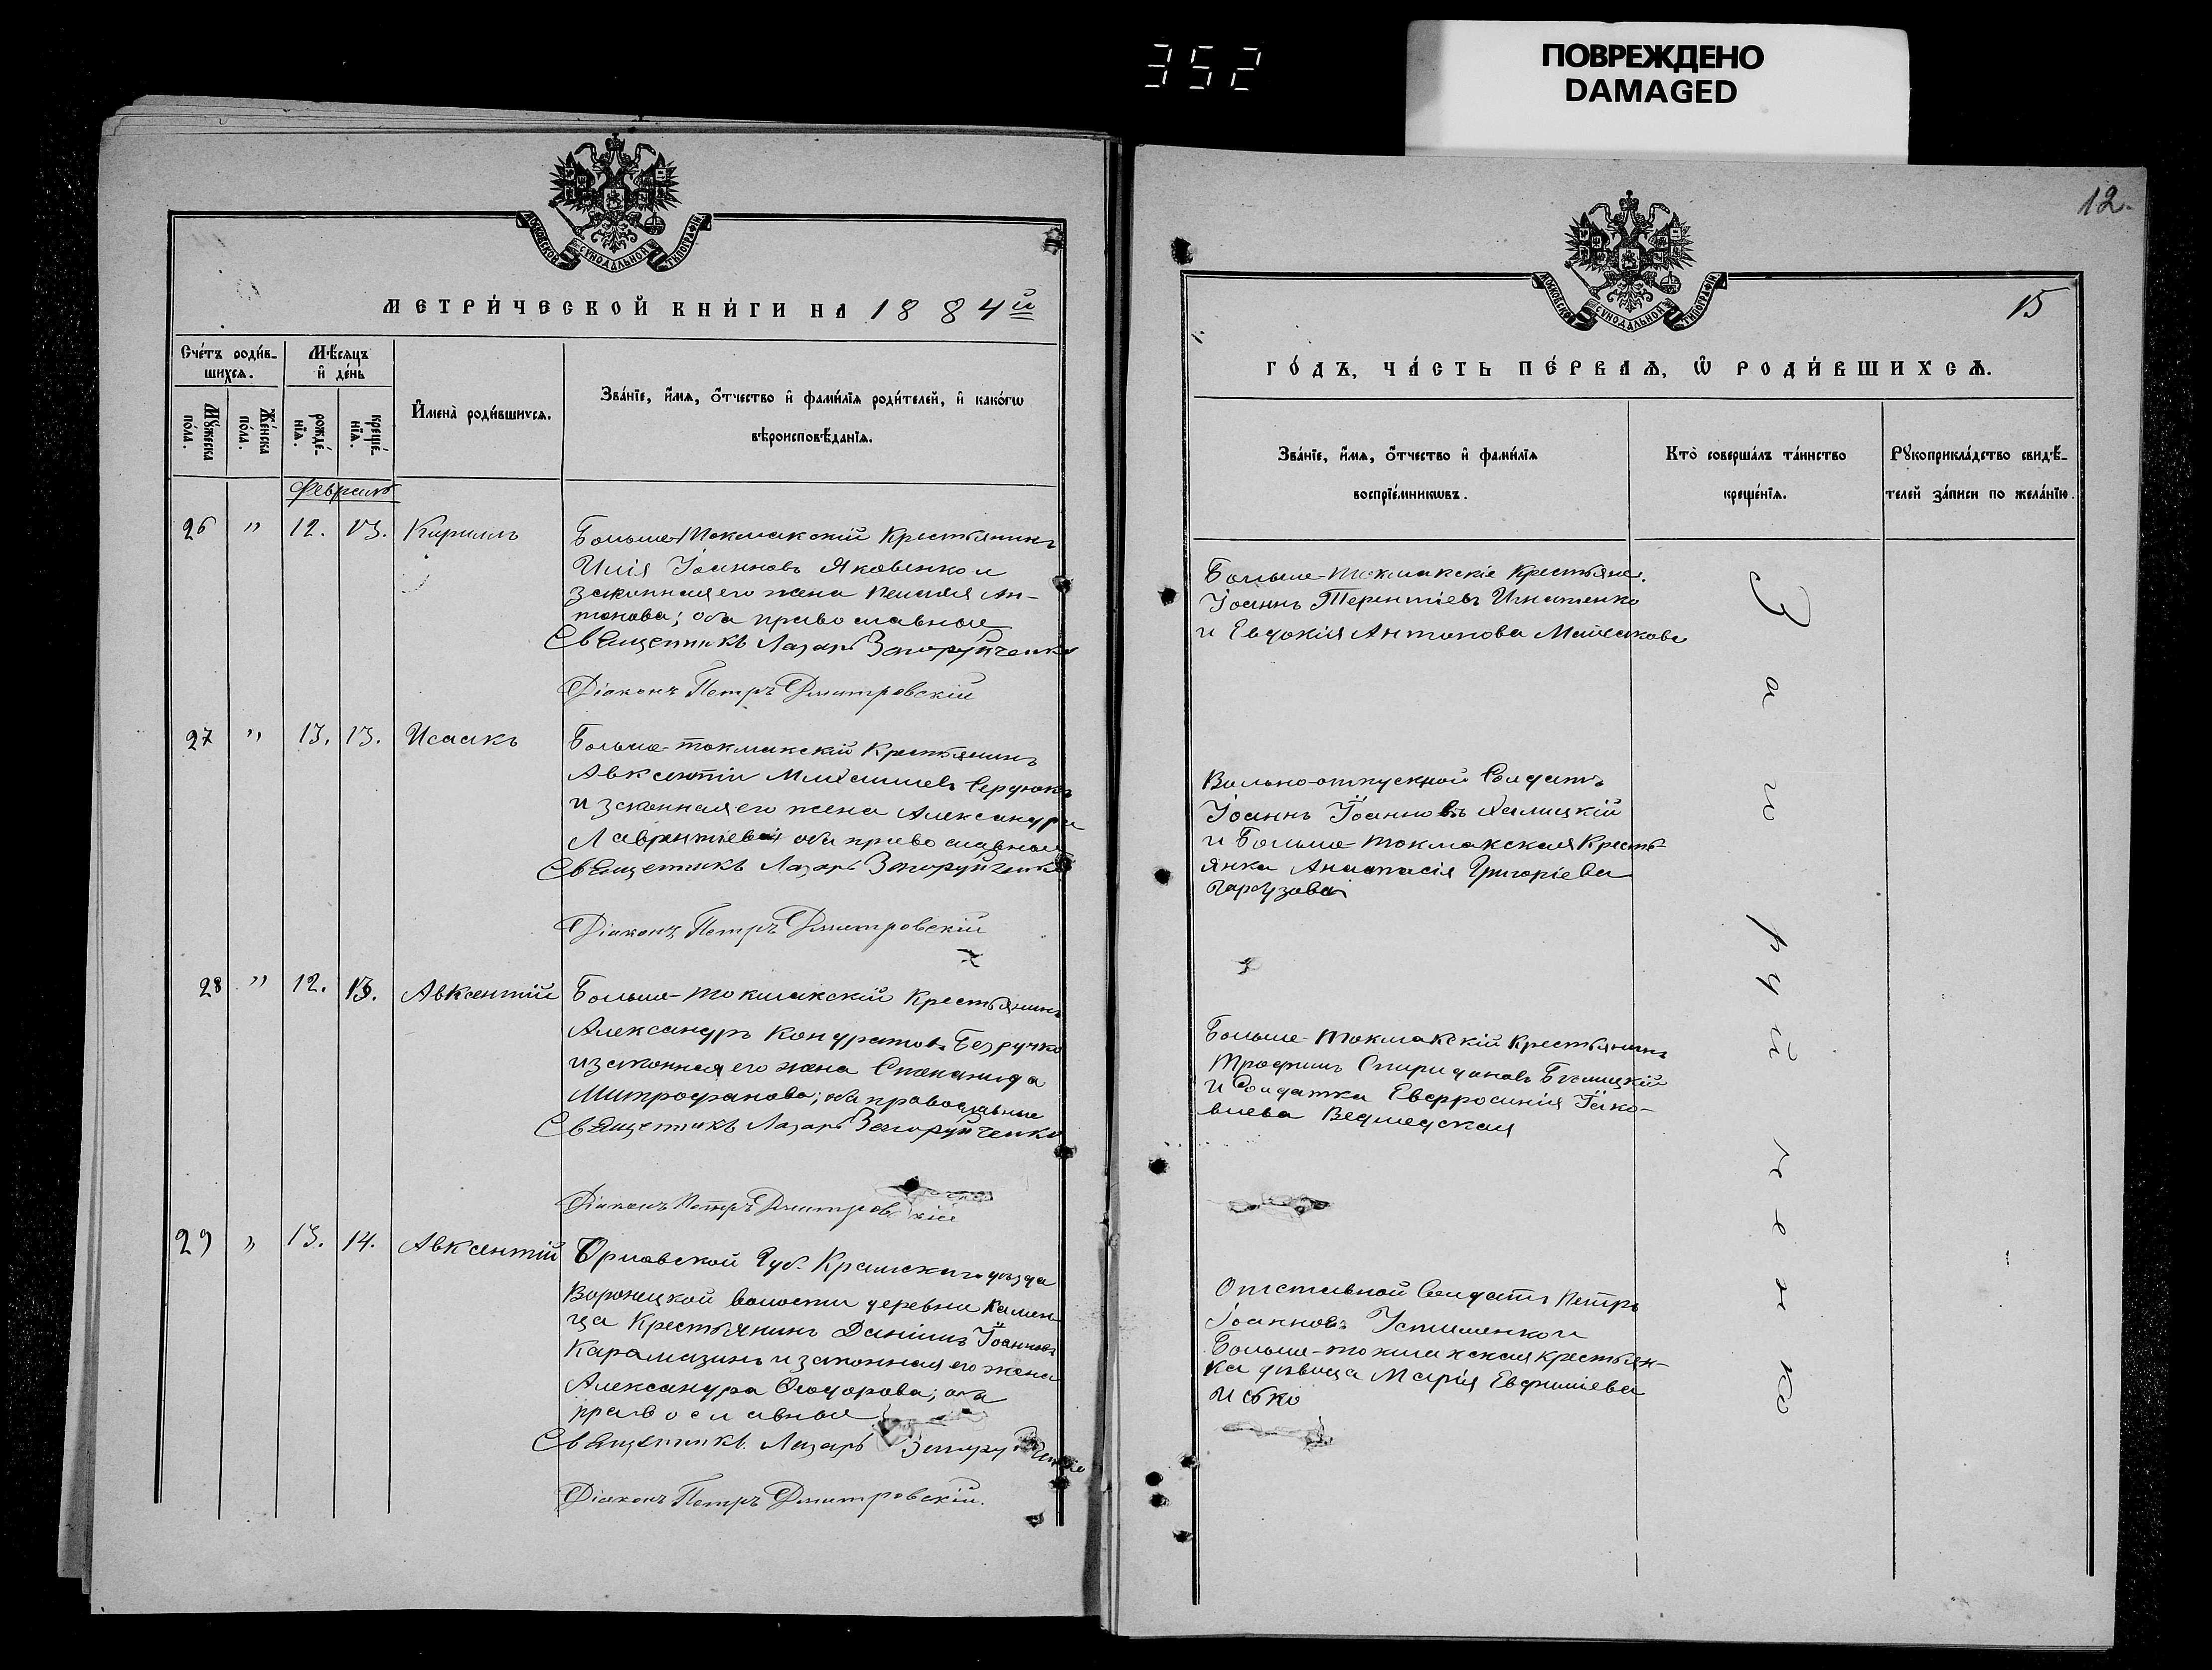 352
ПОВРЕЖДЕНО
DAMAGED
МОСКОВСКОЙ СУНОДАЛЬНОЙ ТИПОГРАФІИ
МЕТРИ́ЧЕСКОЙ КНИ́ГИ НА 1884й
Сче́тъ роди́в-
шихсѧ.
Мѣ́сѧцъ
и҆ де́нь
И҆мена̀ роди́вшихсѧ.
Зва́нїе, и҆́мѧ, ѻ҆́тчество и҆ фами́лїѧ роди́телей, и҆ како́гѡ
вѣроисповѣ́данїѧ.
Мꙋ́жеска
по́ла.
Же́нска
по́ла.
рожде́-
нїѧ.
креще́-
нїѧ.
Февраль
26 " 12. 13. Кириллъ
Больше-Токмакскій Крестьянинъ
Илія Іоанновъ Яковенко и
законная его жена Пелагія Ан-
тонова; оба православные
Священникъ Лазарь Запоруйченко
Діаконъ Петръ Дмитровскій
27 " 13. 13. Исаакъ
Больше-токмакскій Крестьянинъ
Авксентій Сердюкъ
и законная его жена Александра
Лаврентіева оба православные
Священникъ Лазарь Запоруйченко
Діаконъ Петръ Дмитровскій
28 " 12. 13. Авксентій
Больше-токмакскій Крестьянинъ
Александръ Кондратовъ Безручко
и законная его жена Степанида
Митрофанова; оба православные
Священникъ Лазарь Запоруйченко
Діаконъ Петръ Дмитровскій
29 " 13. 14. Авксентій
Орловской Губ. уѣзда
Воронецкой волости деревни Камен-
ца Крестьянинъ Даніилъ Іоанновъ
Карамазинъ и законная его жена
Александра Ѳеодорова; оба
православные
Священникъ Лазарь Запоруйченко
Діаконъ Петръ Дмитровскій.
12.
15
МОСКОВСКОЙ СУНОДАЛЬНОЙ ТИПОГРАФІИ
ГО́ДЪ, ЧА́СТЬ ПЕ́РВАѦ, Ѡ҆ РОДИ́ВШИХСѦ.
Зва́нїе, и҆́мѧ, ѻ҆́тчество и҆ фами́лїѧ
воспрїе́мникѡвъ.
Кто̀ соверша́лъ та́инство
креще́нїѧ.
Рꙋкоприкла́дство свидѣ́-
телей за́писи по жела́нїю.
Больше-токмакскіе Крестьяне.
Іоаннъ Терентіевъ Игнатенко
и Евдокія Антонова
Вольно-отпускной Солдатъ
Іоаннъ Іоанновъ Халицкій
и Больше-токмакская Кресть-
янка Анастасія Григоріева
Гарбузова
Больше-токмакскій Крестьянинъ
Трофимъ Спиридоновъ
и Солдатка Евфросинія Іако-
влева Ведмедская
Отставной Солдатъ Петръ
Іоанновъ Устименко и
Больше-токмакская крестьян-
ка дѣвица Марія Евфиміева
Запоруйченко